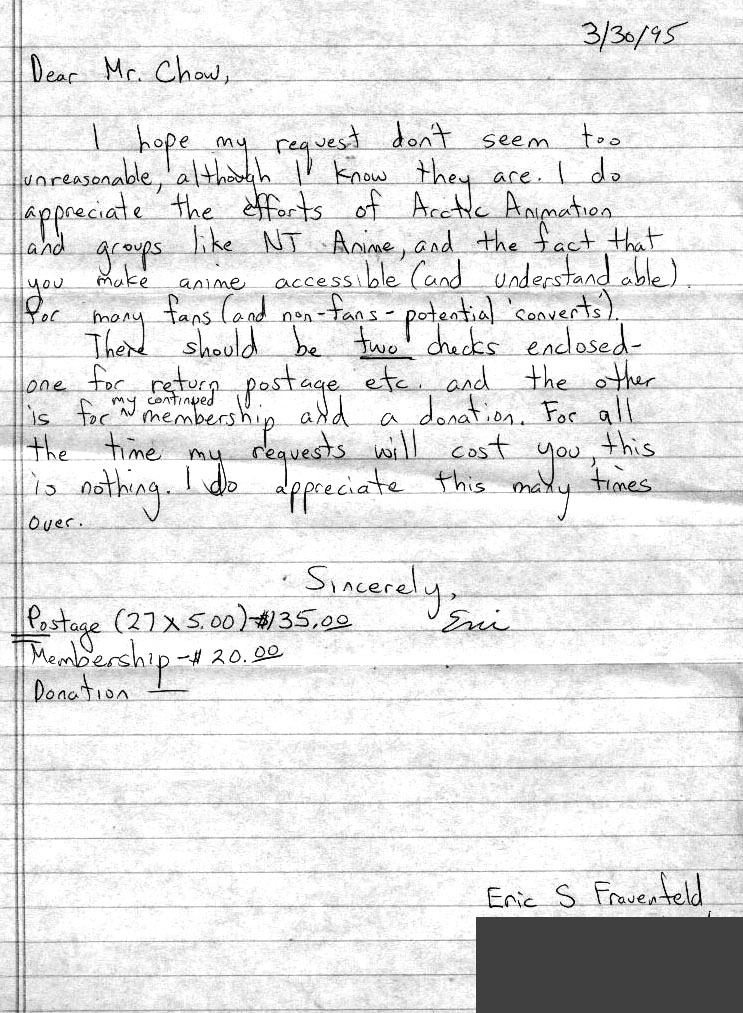 3/30/95
Dear Mr. Chow,
I hope my request don't seem too
unreasonable, although I know they are. I do
appreciate the efforts of Arctic Animation
and groups like NT Anime, and the fact that
you make anime accessible (and understandable)
for many fans (and non-fans - potential 'converts').
There should be two checks enclosed-
one for return postage etc. and the other
is for my continued membership and a donation. For all
the time my requests will cost you, this
is nothing. I do appreciate this many times
over.
Sincerely,
Eric
Postage (27 x 5.00)-$135.00
Membership -$ 20.00
Donation —
Eric S Frauenfeld